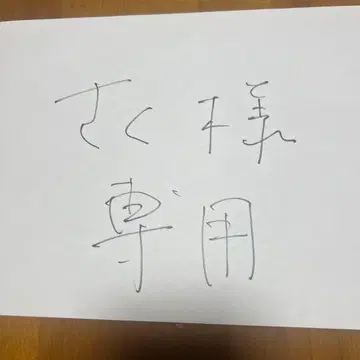 さく様
専用